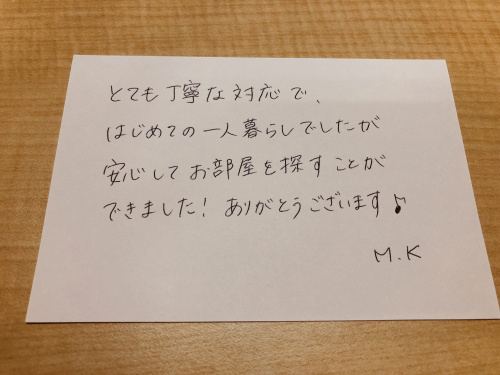 とても丁寧な対応で、
はじめての一人暮らしでしたが
安心してお部屋を探すことが
できました！ありがとうございます♪
M.K